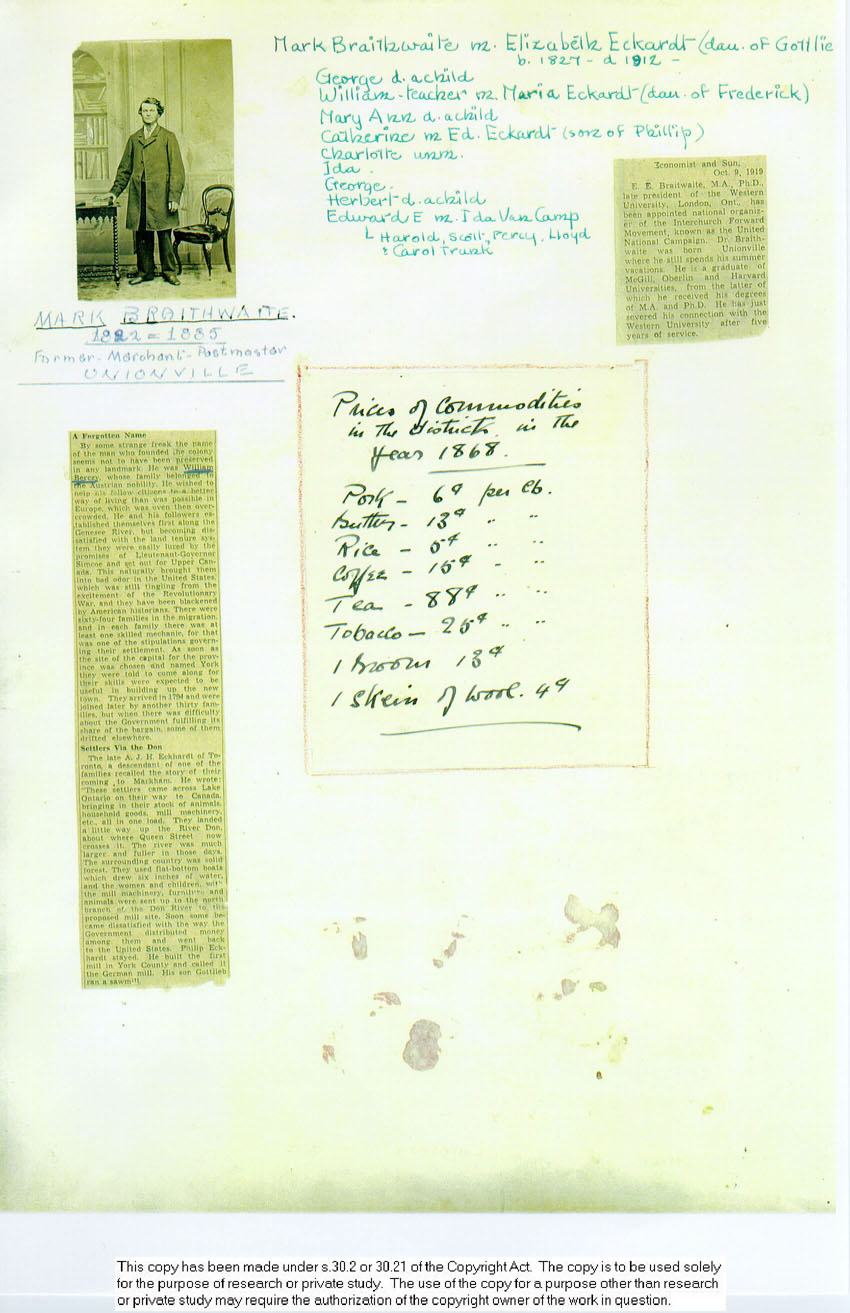 Mark Braithwaite m. Elizabeth Eckardt (dau. of Gottlie
b. 1827 - d 1912 -
George d. a child
William - teacher m. Maria Eckardt (dau. of Frederick)
Mary Ann d. a child
Catherine m Ed. Eckardt (son of Phillip)
Charlotte unm.
Ida.
George.
Herbert d. a child
Edward E m. Ida Van Camp
Harold, Scott, Percy, Lloyd
& Carol Trunk
MARK BRAITHWAITE.
1822 = 1885
Farmer - Merchant - Postmaster
UNIONVILLE
Economist and Sun,
Oct. 9, 1919
E. E. Braitwaite, M.A., Ph.D.,
late president of the Western
University, London, Ont., has
been appointed national organiz-
er of the Interchurch Forward
Movement, known as the United
National Campaign. Dr. Braith-
waite was born Unionville
where he still spends his summer
vacations. He is a graduate of
McGill, Oberlin and Harvard
Universities, from the latter of
which he received his degrees
of M.A. and Ph.D. He has just
severed his connection with the
Western University after five
years of service.
Prices of Commodities
in the districts in the
year 1868.
Pork - 6¢ per lb.
Butter - 13¢ " "
Rice - 5¢ " "
Coffee - 15¢ " "
Tea - 88¢ " "
Tobacco - 25¢ " "
1 broom 13¢
1 Skein of wool. 4¢
A Forgotten Name
By some strange freak the name
of the man who founded the colony
seems not to have been preserved
in any landmark. He was William
Berczy, whose family belonged to
the Austrian nobility. He wished to
help his fellow citizens to a better
way of living than was possible in
Europe, which was even then over-
crowded. He and his followers es-
tablished themselves first along the
Genesee River, but becoming dis-
satisfied with the land tenure sys-
tem they were easily lured by the
promises of Lieutenant-Governor
Simcoe and set out for Upper Can-
ada. This naturally brought them
into bad odor in the United States,
which was still tingling from the
excitement of the Revolutionary
War, and they have been blackened
by American historians. There were
sixty-four families in the migration,
and in each family there was at
least one skilled mechanic, for that
was one of the stipulations govern-
ing their settlement. As soon as
the site of the capital for the prov-
ince was chosen and named York
they were told to come along for
their skills were expected to be
useful in building up the new
town. They arrived in 1794 and were
joined later by another thirty fam-
ilies, but when there was difficulty
about the Government fulfilling its
share of the bargain, some of them
drifted elsewhere.
Settlers Via the Don
The late A. J. H. Eckhardt of To-
ronto, a descendant of one of the
families recalled the story of their
coming to Markham. He wrote:
"These settlers came across Lake
Ontario on their way to Canada,
bringing in their stock of animals,
household goods, mill machinery,
etc., all in one load. They landed
a little way up the River Don,
about where Queen Street now
crosses it. The river was much
larger and fuller in those days.
The surrounding country was solid
forest. They used flat-bottom boats
which drew six inches of water,
and the women and children, with
the mill machinery, furniture and
animals were sent up to the north
branch of the Don River to the
proposed mill site. Soon some be-
came dissatisfied with the way the
Government distributed money
among them and went back
to the United States. Philip Eck-
hardt stayed. He built the first
mill in York County and called it
the German mill. His son Gottlieb
ran a sawmill.
This copy has been made under s.30.2 or 30.21 of the Copyright Act. The copy is to be used solely
for the purpose of research or private study. The use of the copy for a purpose other than research
or private study may require the authorization of the copyright owner of the work in question.